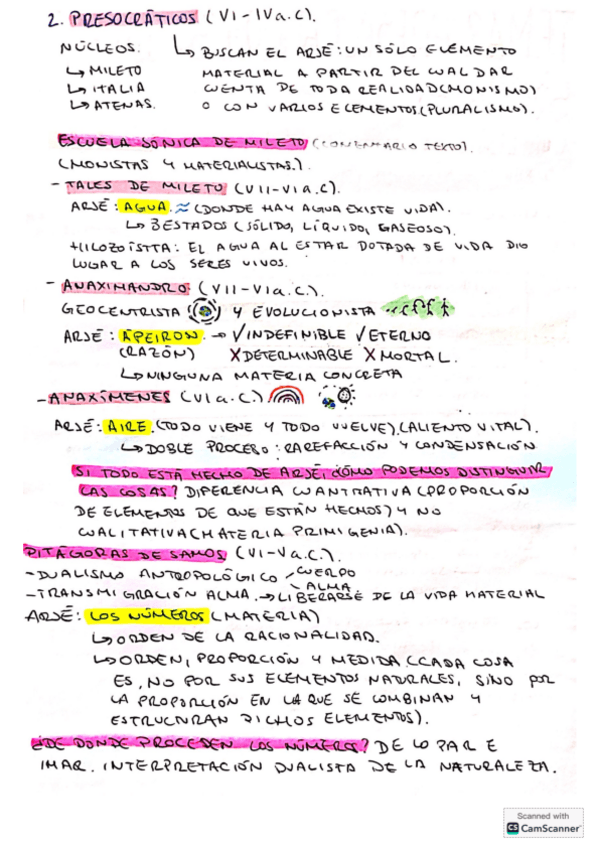 2. PRESOCRÁTICOS (VI-IV a.C).
NÚCLEOS. ↳ BUSCAN EL ARJÉ: UN SÓLO ELEMENTO
↳ MILETO MATERIAL A PARTIR DEL CUAL DAR
↳ ITALIA CUENTA DE TODA REALIDAD (MONISMO)
↳ ATENAS. O CON VARIOS ELEMENTOS (PLURALISMO).
ESCUELA JÓNICA DE MILETO (COMENTARIO TEXTO).
(MONISTAS Y MATERIALISTAS.).
- TALES DE MILETO (VII-VI a.C).
ARJÉ: AGUA ≈ (DONDE HAY AGUA EXISTE VIDA).
↳ 3 ESTADOS (SÓLIDO, LÍQUIDO, GASEOSO).
HILOZOÍSTTA: EL AGUA AL ESTAR DOTADA DE VIDA DIO
LUGAR A LOS SERES VIVOS.
- ANAXIMANDRO (VII-VI a.C).
GEOCENTRISTA Y EVOLUCIONISTA
ARJÉ: ÁPEIRON → ✓INDEFINIBLE ✓ETERNO
(RAZÓN) XDETERMINABLE XMORTAL.
↳ NINGUNA MATERIA CONCRETA
- ANAXÍMENES (VI a.C.)
ARJÉ: AIRE. (TODO VIENE Y TODO VUELVE). (ALIENTO VITAL).
↳ DOBLE PROCESO: RAREFACCIÓN Y CONDENSACIÓN
SI TODO ESTÁ HECHO DE ARJÉ, ¿CÓMO PODEMOS DISTINGUIR
LAS COSAS? DIFERENCIA CUANTITATIVA (PROPORCIÓN
DE ELEMENTOS DE QUE ESTÁN HECHOS) Y NO
CUALITATIVA (MATERIA PRIMIGENIA).
PITÁGORAS DE SAMOS (VI-V a.C.).
- DUALISMO ANTROPOLÓGICO CUERPO
ALMA
- TRANSMIGRACIÓN ALMA. → LIBERARSE DE LA VIDA MATERIAL
ARJÉ: LOS NÚMEROS (MATERIA)
↳ ORDEN DE LA RACIONALIDAD.
↳ ORDEN, PROPORCIÓN Y MEDIDA. (CADA COSA
ES, NO POR SUS ELEMENTOS NATURALES, SINO POR
LA PROPORCIÓN EN LA QUE SE COMBINAN Y
ESTRUCTURAN DICHOS ELEMENTOS).
¿DE DONDE PROCEDEN LOS NÚMEROS? DE LO PAR E
IMAR. INTERPRETACIÓN DUALISTA DE LA NATURALEZA.
Scanned with
CS CamScanner